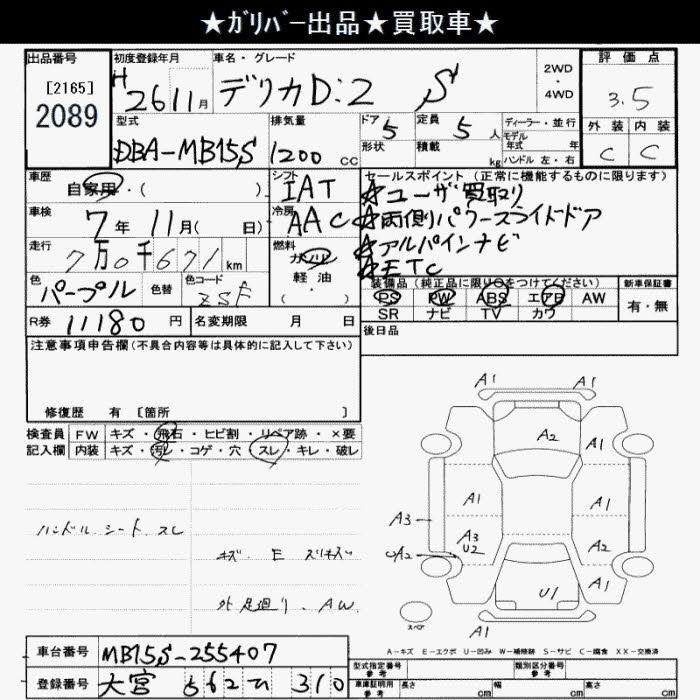 ★ｶﾞﾘﾊﾞｰ出品★買取車★
出品番号
[2165]
2089
初度登録年月
H 26 11 月
車名・グレード
デリカD:2 S
2WD
・
4WD
評価点
3.5
外装 内装
C C
型式
DBA-MB15S
排気量
1200 cc
ドア 5
形状
定員 5 人
積載 kg
ディーラー・並行
モデル
年式 年
ハンドル 左・右
車歴
自家用・( )
シフト
IAT
セールスポイント (正常に機能するものに限ります)
☆ユーザ買取り
☆両側パワースライドドア
☆アルパインナビ
☆ETC
車検
7年 11月( 日)
冷房
AAC
走行
7万0千671 km
燃料
ガソリン
軽油
・( )
色
パープル
色替
色コード
ZSF
装備品 (純正品に限り〇をつけてください)
PS PW ABS エアB AW
SR ナビ TV カワ
新車保証書
有・無
後日品
R券 11180 円
名変期限 月 日
注意事項申告欄(不具合内容等は具体的に記入して下さい)
修復歴 有 [箇所 ]
検査員 FW キズ・飛石・ヒビ割・リペア跡・×要
記入欄 内装 キズ・汚レ・コゲ・穴・スレ・キレ・破レ
ハンドル シート スレ
キズ E スリキズ
外 足廻り. AW
A1 A1
A2 A1
A1 A1
A3 A3 U2 A2
A2
U1 A1
A1
スペア
A-キズ E-エクボ U-凹み W-補修跡 S-サビ C-腐食 XX-交換済
車台番号 MB15S-255407
登録番号 大宮 562 ひ 310
型式指定番号
参考
類別区分番号
参考
車庫証明用
参考
長さ cm 幅 cm 高さ cm